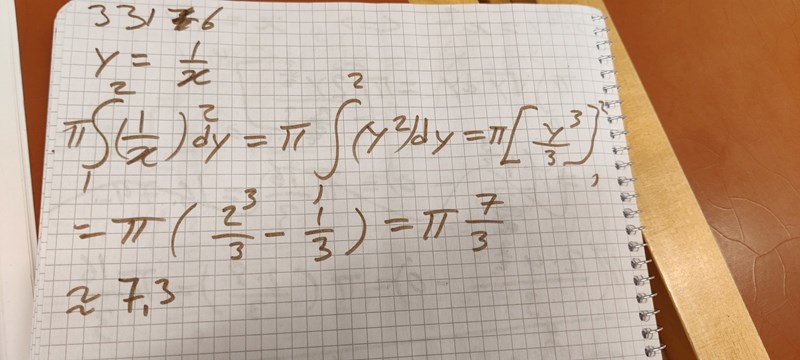 33176
y = 1/x
π∫₁² (1/x)² dy = π ∫₁² (y²) dy = π [y³/3]₁²
= π ( 2³/3 − 1/3 ) = π 7/3
≈ 7,3